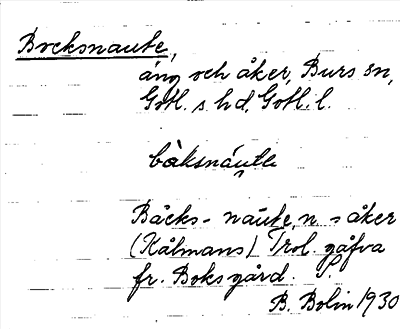 Bocksnaute,
äng och åker, Burs sn,
Gotl. s. hd, Gotl. l.
bàksnáute
Bäcks-naute, n. såker
(Kälmans) Trol. gåfva
fr. Boksgård.
B. Bolin 1930